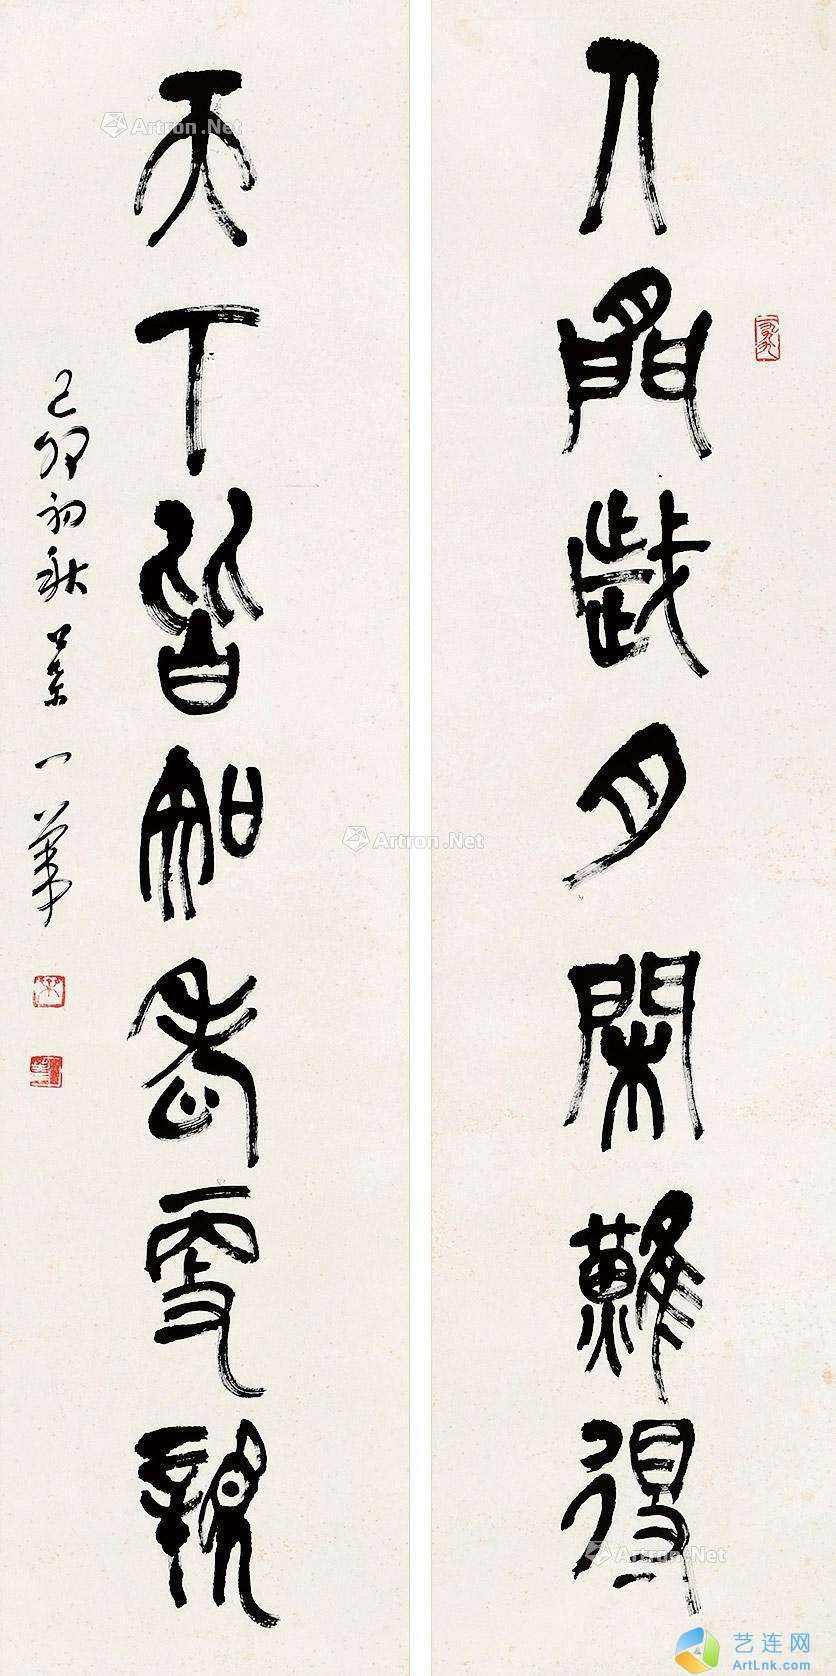 人间歲月閑難得
天下皆知老更親
己卯初秋
Artron.Net
Artron.Net
Artron.Net
艺连网
ArtLnk.com